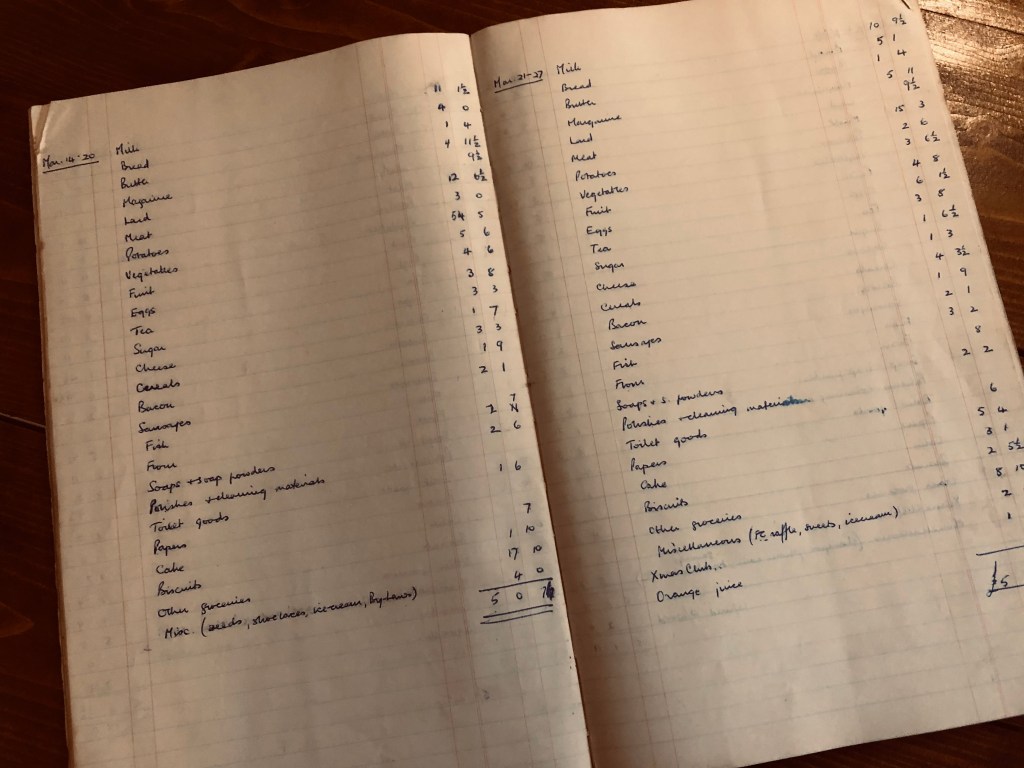 Mar. 14-20 Milk 11 1½
Bread 4 0
Butter 1 4
Margarine 4 11½
Lard 9½
Meat 12 6½
Potatoes 3 0
Vegetables 5
Fruit 5 6
Eggs 4 6
Tea 3 8
Sugar 3 3
Cheese 1 7
Cereals 3 3
Bacon 1 9
Sausages 2 1
Fish
Flour 7
Soaps + soap powders 2
Polishes + cleaning materials 2 6
Toilet goods 1 6
Papers
Cake 7
Biscuits 1 10
Other groceries 17 10
Misc. (seeds, shoelaces, ice-cream, 4 0
5 0 7½
Mar. 21-27 Milk 10 9½
Bread 5 1
Butter 1 4
Margarine 5 11
Lard 9½
Meat 15 3
Potatoes 2 6
Vegetables 3 6½
Fruit 4 8
Eggs 6 1½
Tea 3 8
Sugar 1 6½
Cheese 1 3
Cereals 4 3½
Bacon 1 9
Sausages 2 1
Fish 3 2
Flour 8
Soaps + s. powders 2 2
Polishes + cleaning materials
Toilet goods 6
Papers 5 4
Cake 3 1
Biscuits 2 5½
Other groceries 8 10
Miscellaneous (P.E. raffle, sweets, icecream) 2
Xmas Club 1
Orange juice
£5